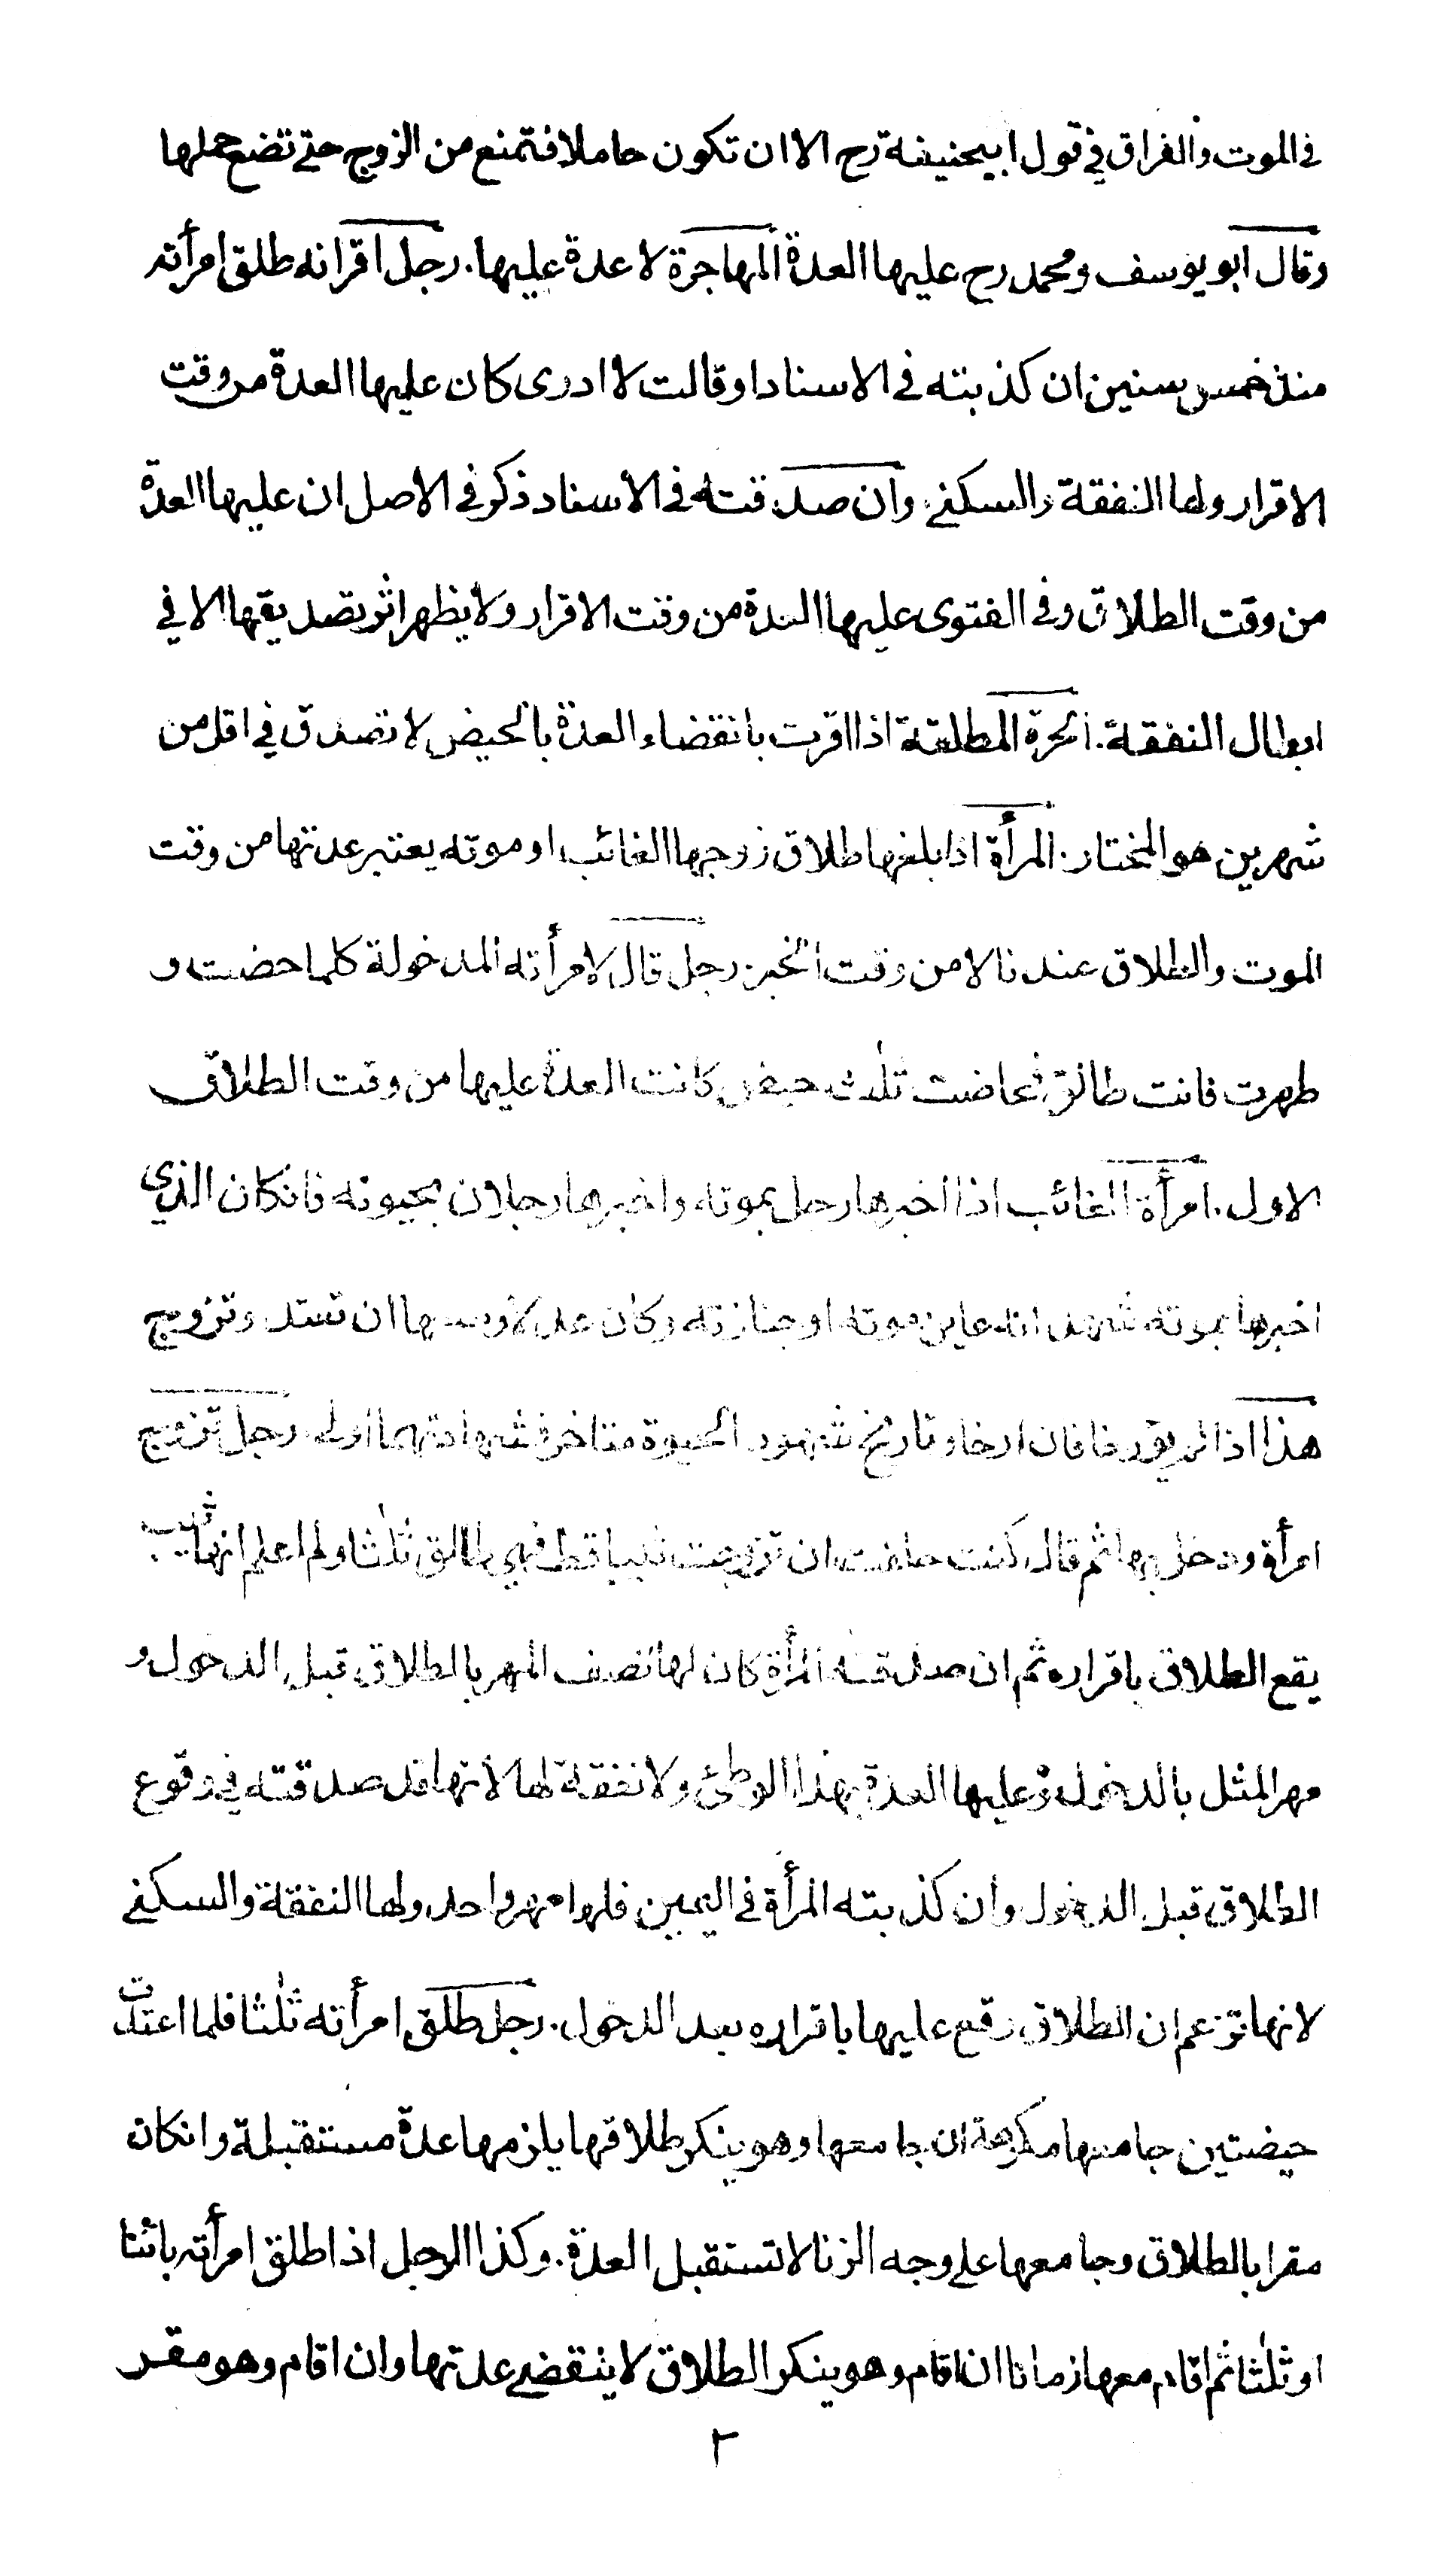 في الموت والفراق في قول ابيحنيفة رح الا ان تكون حاملا فتمنع من الزوج حتى تضع حملها
وقال ابو يوسف ومحمد رح عليها العدة المهاجرة لا عدة عليها. رجل اقرانه طلق امرأته
منذ خمس سنين ان كذبته في الاسناد او قالت لا ادرى كان عليها العدة من وقت
الاقرار ولها النفقة والسكنى وان صدقته في الاسناد ذكر في الاصل ان عليها العدة
من وقت الطلاق وفي الفتوى عليها العدة من وقت الاقرار ولا يظهر اثر تصديقها الا في
ابطال النفقة. الحرة المطلقة اذا اقرت بانقضاء العدة بالحيض لا تصدق في اقل من
شهرين هو المختار. المرأة اذا بلغها طلاق زوجها الغائب او موته يعتبر عدتها من وقت
الموت والطلاق عندنا لا من وقت الخبر. رجل قال لامرأته المدخولة كلما حضت و
طهرت فانت طالق فحاضت ثلث حيض كانت العدة عليها من وقت الطلاق
الاول. امرأة الغائب اذا اخبرها رجل بموته واخبرها رجلان بحيوته فانكان الذي
اخبرها بموته شهد انه عاين موته او جنازته وكان عدلا وسعها ان تعتد وتزوج
هذا اذا لم يؤرخا فان ارخا وتاريخ شهود الحيوة متاخر فشهادتهما اولى رجل تزوج
امرأة ودخل بها ثم قال كنت حلفت ان تزوجت ثيبا قط فهي طالق ثلثا ولم اعلم انها ثيب
يقع الطلاق باقراره ثم ان صدقته المرأة كان لها نصف المهر بالطلاق قبل الدخول و
مهر المثل بالدخول وعليها العدة بهذا الوطئ ولا نفقة لها لانها قد صدقته في وقوع
الطلاق قبل الدخول وان كذبته المرأة في اليمين فلها مهر واحد ولها النفقة والسكنى
لانها تزعم ان الطلاق وقع عليها باقراره بعد الدخول. رجل طلق امرأته ثلثا فلما اعتدت
حيضتين جامعها مكرهة ان جامعها وهو ينكر طلاقها يلزمها عدة مستقبلة وانكان
مقرا بالطلاق وجامعها على وجه الزنا لا تستقبل العدة. وكذا الرجل اذا طلق امرأته بائنا
او ثلثا ثم اقام معها زمانا ان اقام وهو ينكر الطلاق لا ينقضي عدتها وان اقام وهو مقر
٢